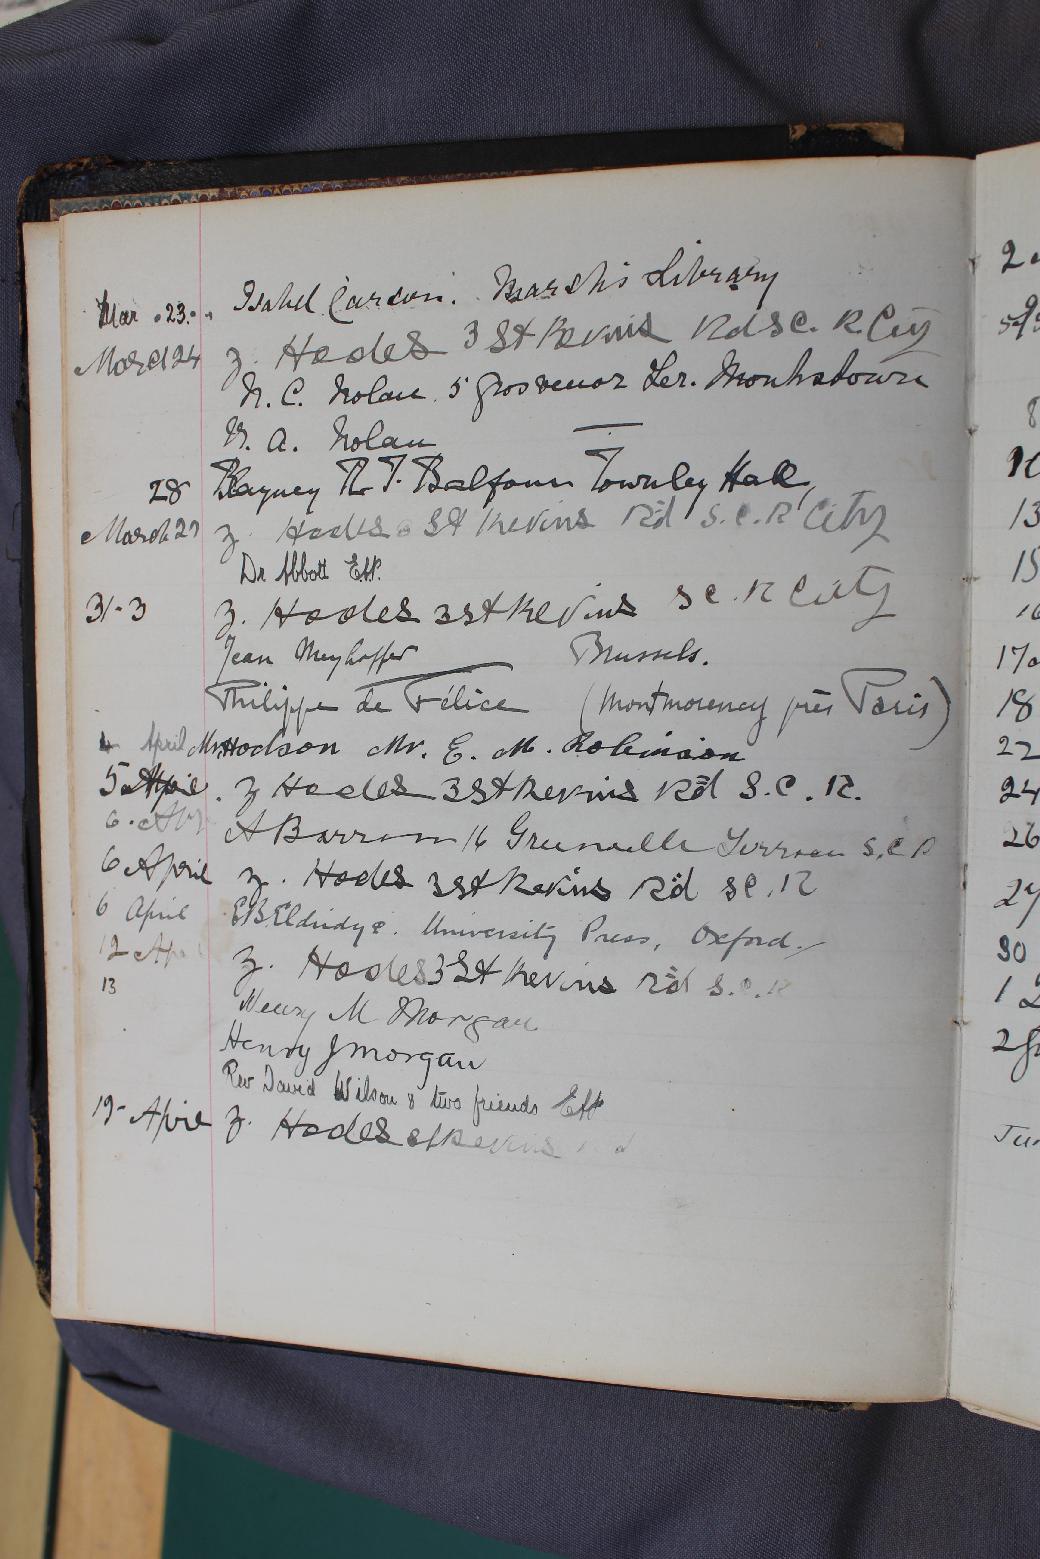 Mar . 23. Isabel Carson. Marsh's Library
March 24 z. Hodes 3 St Kevins Rd S.C. R City
N. C. Nolan 5 Grosvenor Ter. Monkstown
M. A. Nolan —
28 Blayney R. T. Balfour Townley Hall,
March 27 z. Hodes 3 St Kevins Rd S.C.R City
Dr Abbott Eff.
31-3 z. Hodes 3 St Kevins S C. R City
Jean Meyhoffer Brussels.
Philippe de Félice (Montmorency près Paris)
4 April Mr Hodson Mr. E. M. Robinson
5 Apr. z Hodes 3 St Kevins Rd S.C.R.
6. Apr A Barron 16 Grenville Terrace S.C.R
6 April z. Hodes 3 St Kevins Rd SC.R
6 April E B Eldridge. University Press, Oxford.
12 Ap z. Hodes 3 St Kevins Rd S.C.R
13 M Morgan
Henry J Morgan
Rev David Wilson & two friends Eff
19 April z. Hodes St Kevins Rd
2
8
13
15
18
22
24
26
27
30
1
2